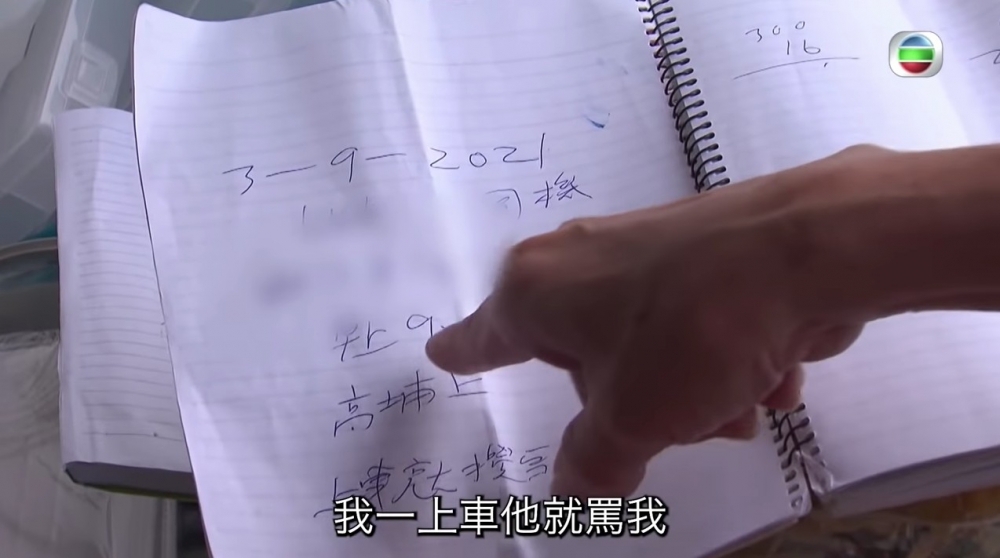 300
16
3-9-2021
司機
早上9
高埔上
上車就
我一上車他就罵我